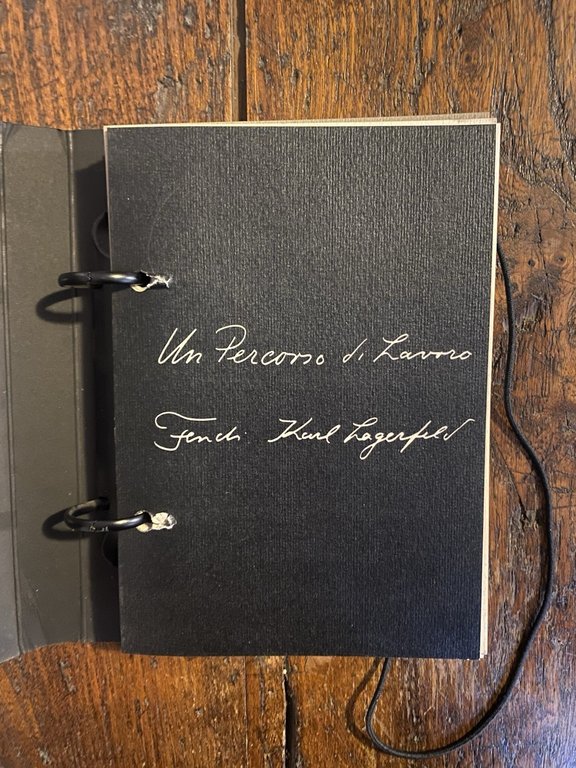 Un Percorso di Lavoro
Fendi Karl Lagerfeld